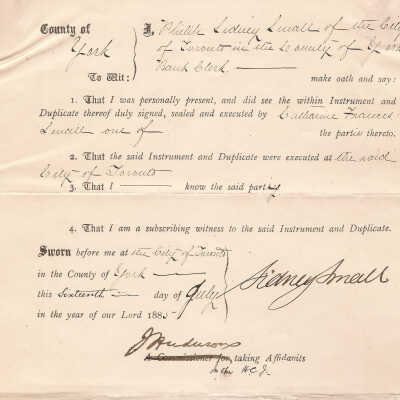 County of York To Wit:
I, Philip Sidney Small of the City
of Toronto in the County of York
Bank Clerk — make oath and say:
1. That I was personally present, and did see the within Instrument and
Duplicate thereof duly signed, sealed and executed by Catharine Frances
Small one of the parties thereto.
2. That the said Instrument and Duplicate were executed at the said
City of Toronto
3. That I — know the said party
4. That I am a subscribing witness to the said Instrument and Duplicate.
Sworn before me at the City of Toronto
in the County of York —
this Sixteenth — day of July
in the year of our Lord 1885
Sidney Small
A Commissioner for taking Affidavits
in the H.C.J.